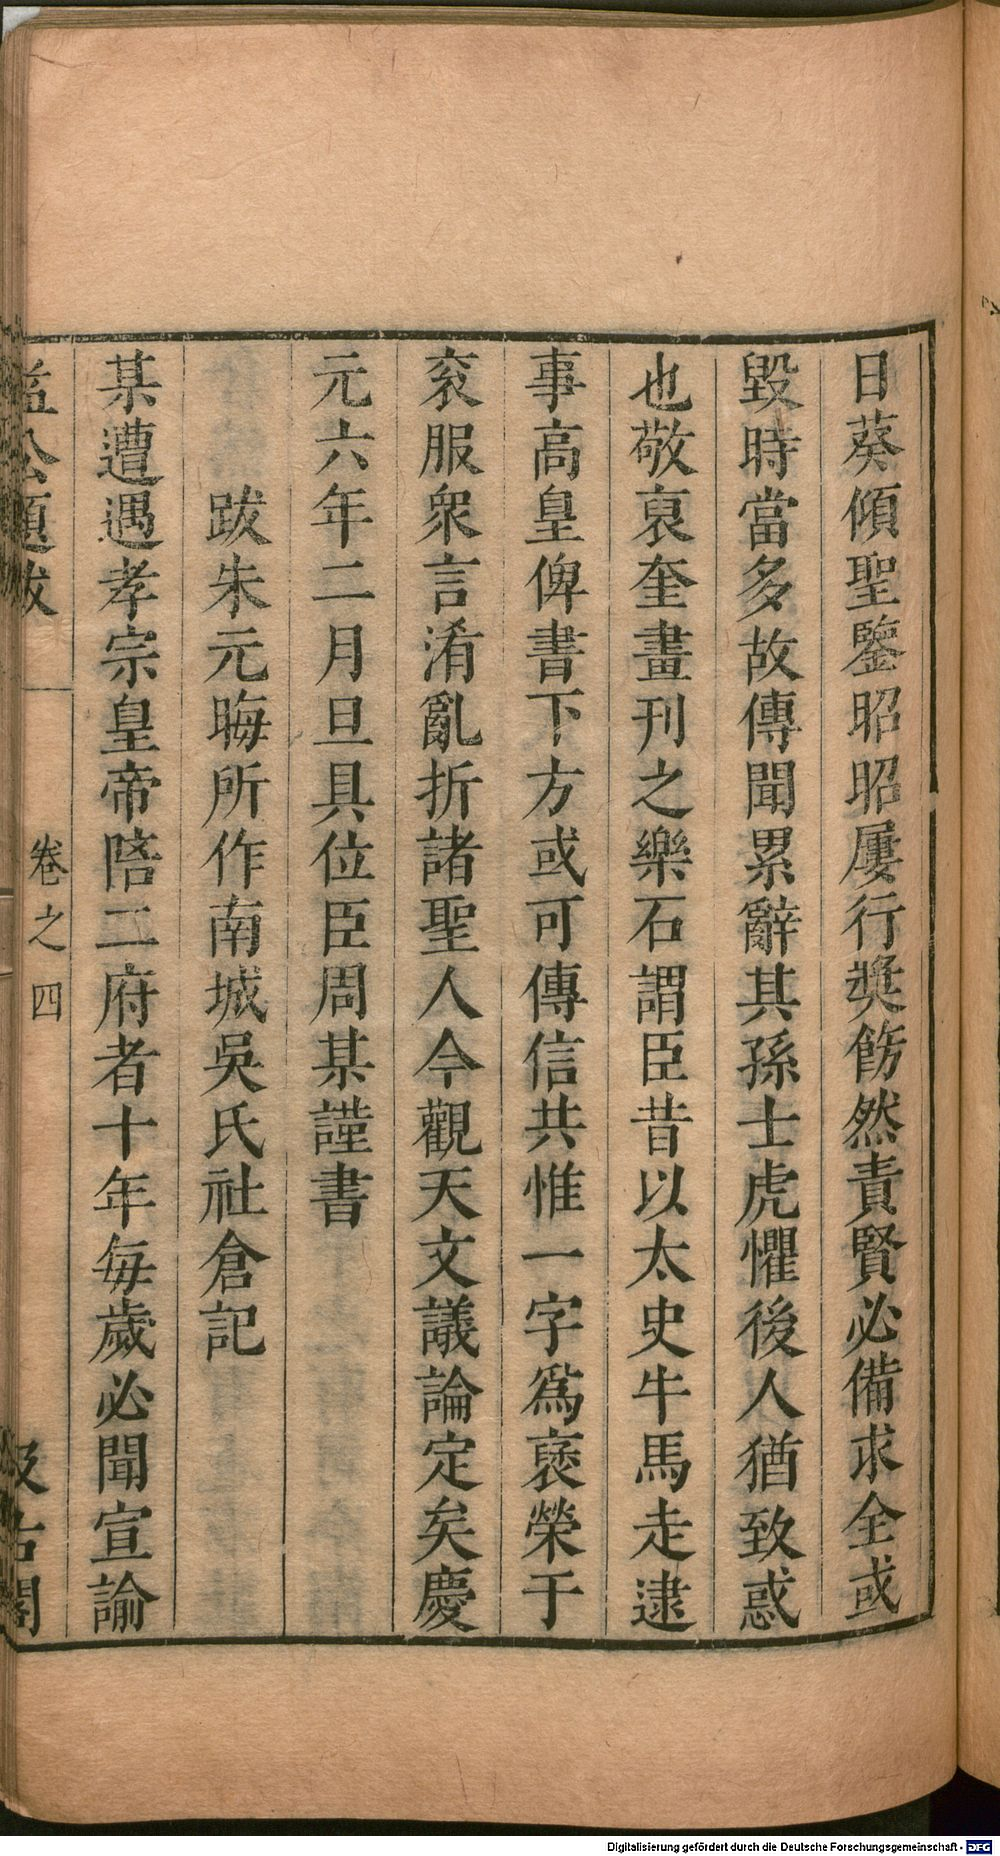 日葵傾聖鑒昭昭屢行奬飭然責賢必備求全或
毀時當多故傳聞累辭其孫士虎懼後人猶致惑
也敬裒奎畫刊之樂石謂臣昔以太史牛馬走逮
事高皇俾書下方或可傳信共惟一字爲褒榮于
衮服衆言淆亂折諸聖人今觀天文議論定矣慶
元六年二月旦具位臣周某謹書
跋朱元晦所作南城吳氏社倉記
某遭遇孝宗皇帝陪二府者十年每歲必聞宣諭
益公題跋
卷之四
汲古閣
Digitalisierung gefördert durch die Deutsche Forschungsgemeinschaft - DFG